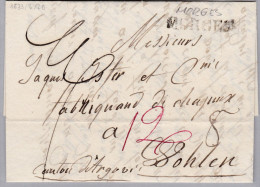 MORGES
MORGES
Messieurs
Jaques Isler et Cnie
fabriquand de chapeux
a 12 8
Wohlen
canton d'Argovie